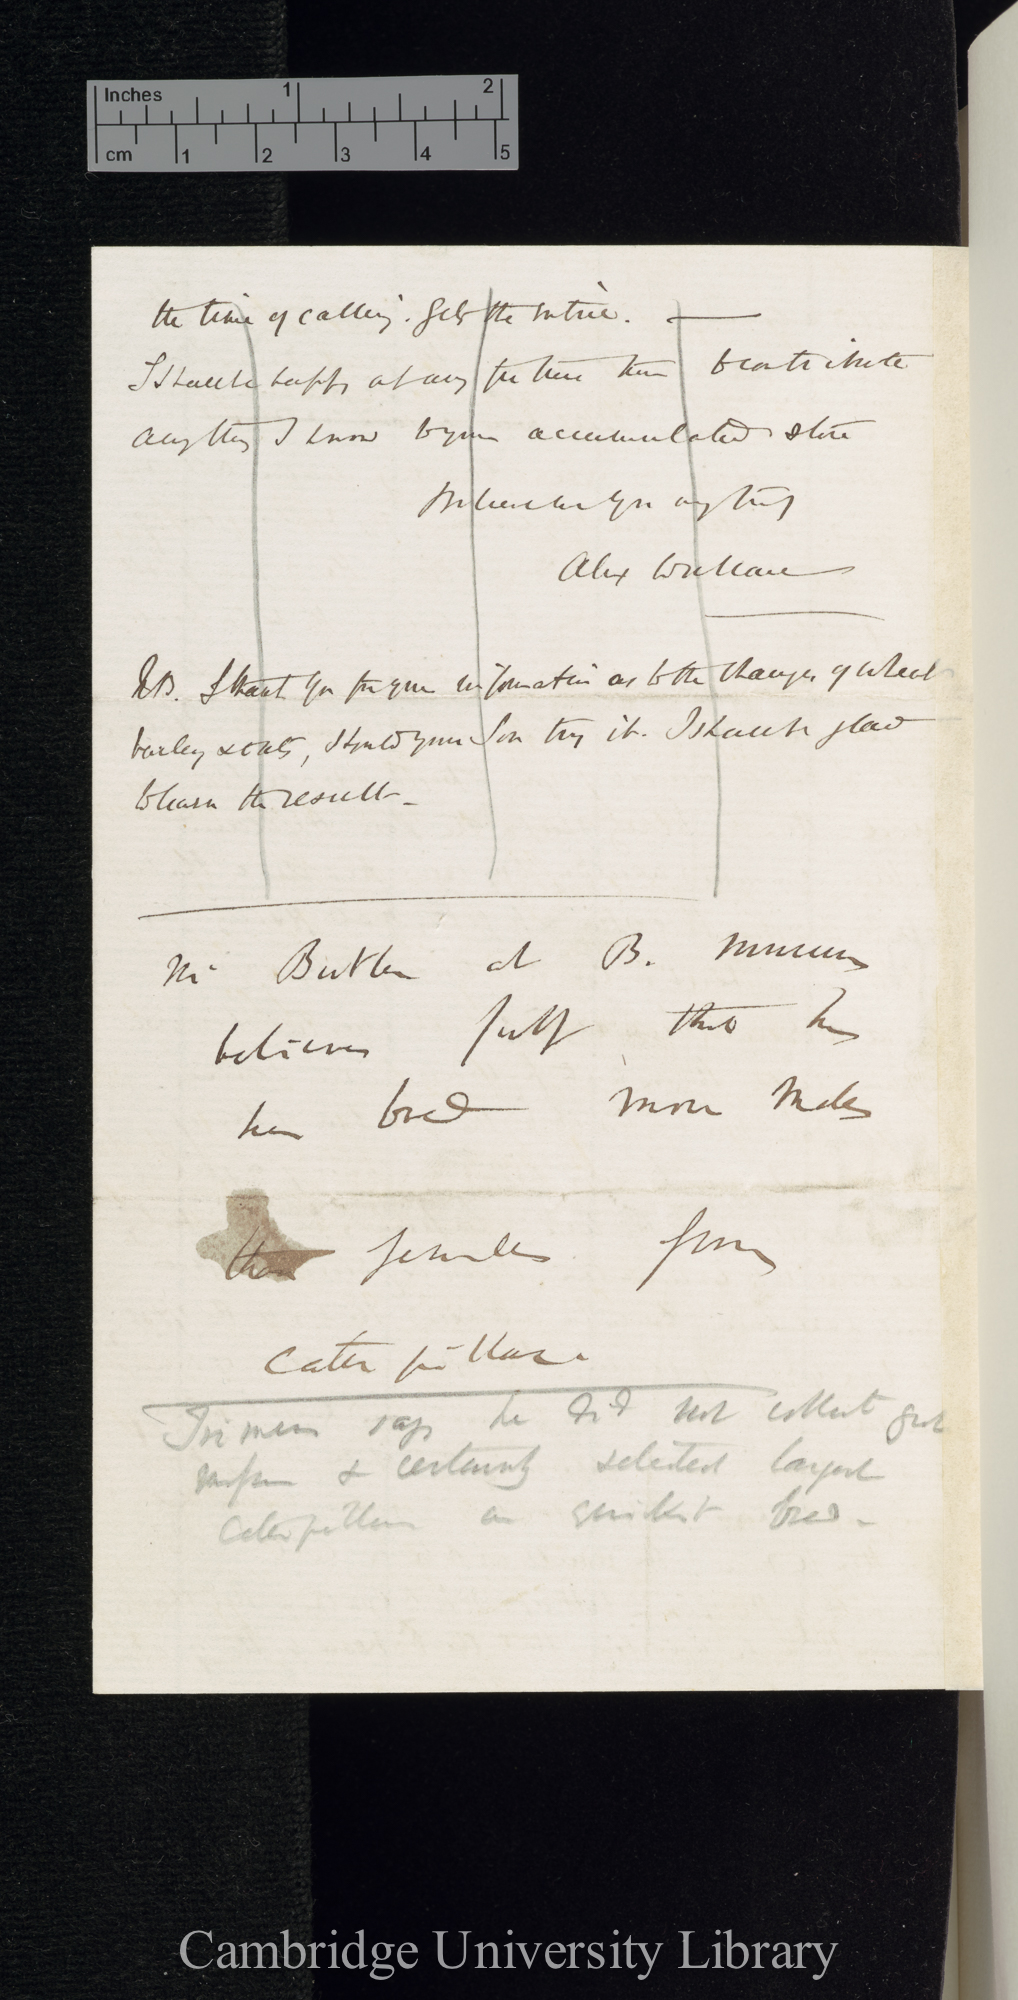 Inches 1 2
cm 1 2 3 4 5
the time of calling. gets the
I shall be happy at any future time to contribute
anything I know to your accumulated store
Believe me
Alex Wallace
NB. I thank you for your information as to the changes of wheat
barley & oats, should your Son try it. I shall be glad
to learn the result –
Mr Butler at B. Museum
believes fully that he
has bred more males
than females from
caterpillars
Trimen says he did not collect great
& certainly selected largest
caterpillars as quickest bred –
Cambridge University Library